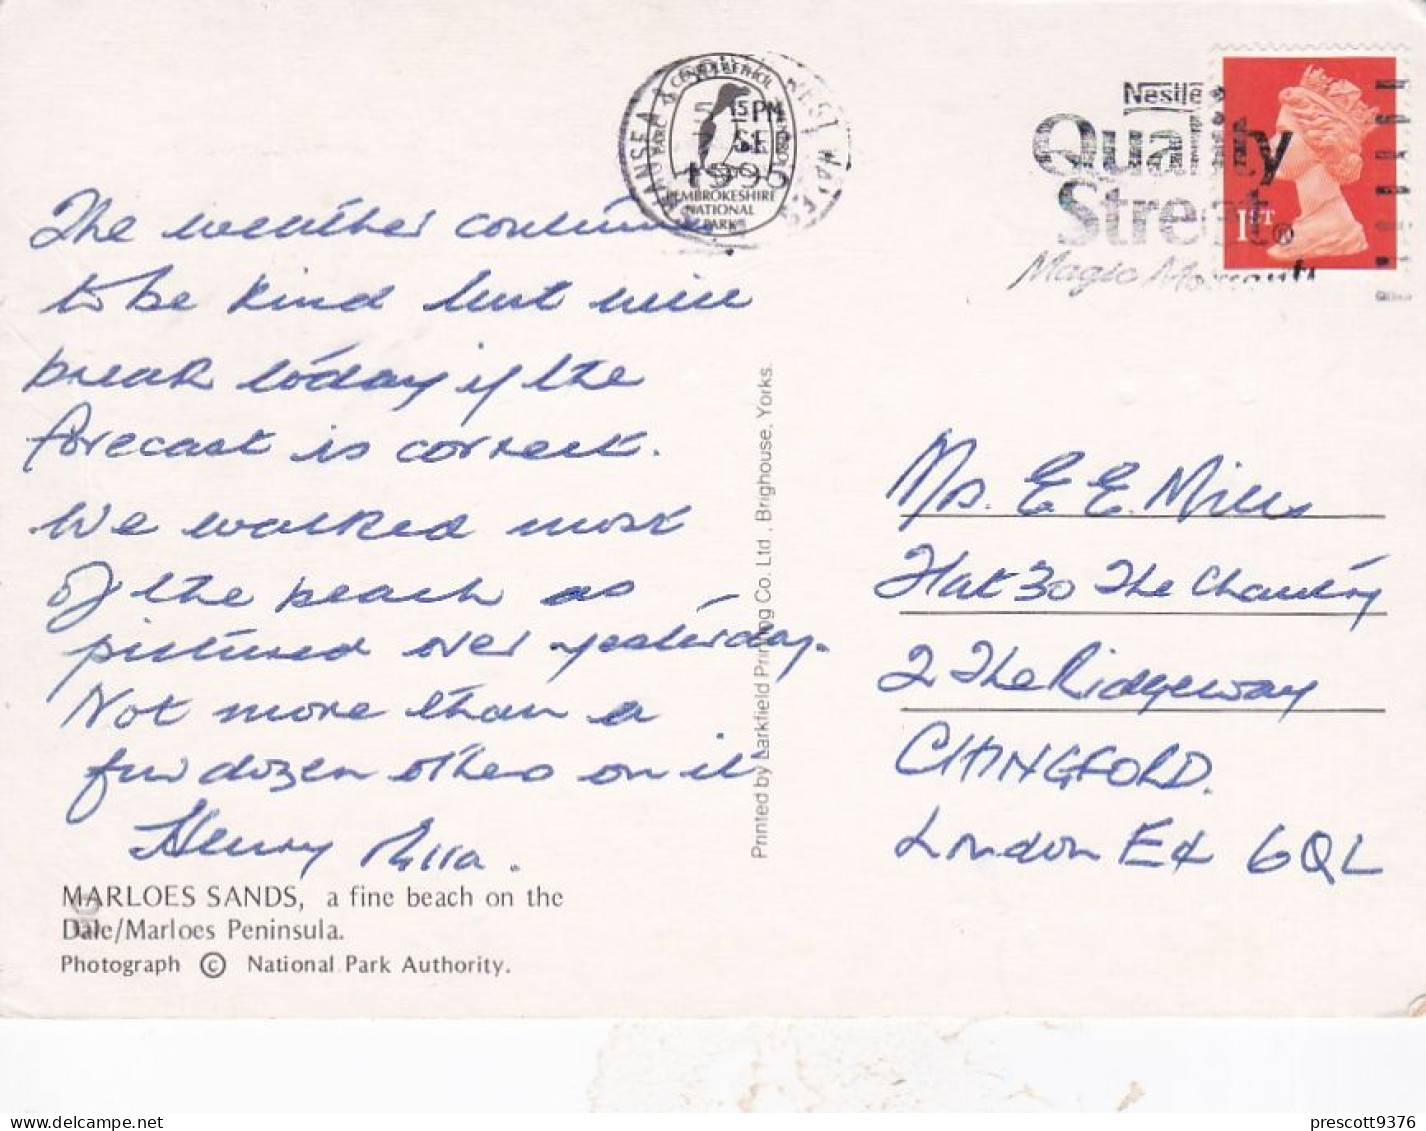 The weather continues
to be kind but will
break today if the
forecast is correct.
We walked most
of the beach as
pictured over yesterday.
Not more than a
few dozen others on it
Henry
MARLOES SANDS, a fine beach on the
Dale/Marloes Peninsula.
Photograph © National Park Authority.
Printed by Larkfield Printing Co. Ltd., Brighouse, Yorks.
SWANSEA & SOUTH WEST WALES
PARC CENEDLAETHOL
PEMBROKESHIRE
NATIONAL
PARK
PM
SE
1995
Nestlé
Quality
Street®
Magic Moments
1ST
Ms. E E. Mills
Flat 30 The Chantry
2 The Ridgeway
CHINGFORD.
London E4 6QL
prescott9376